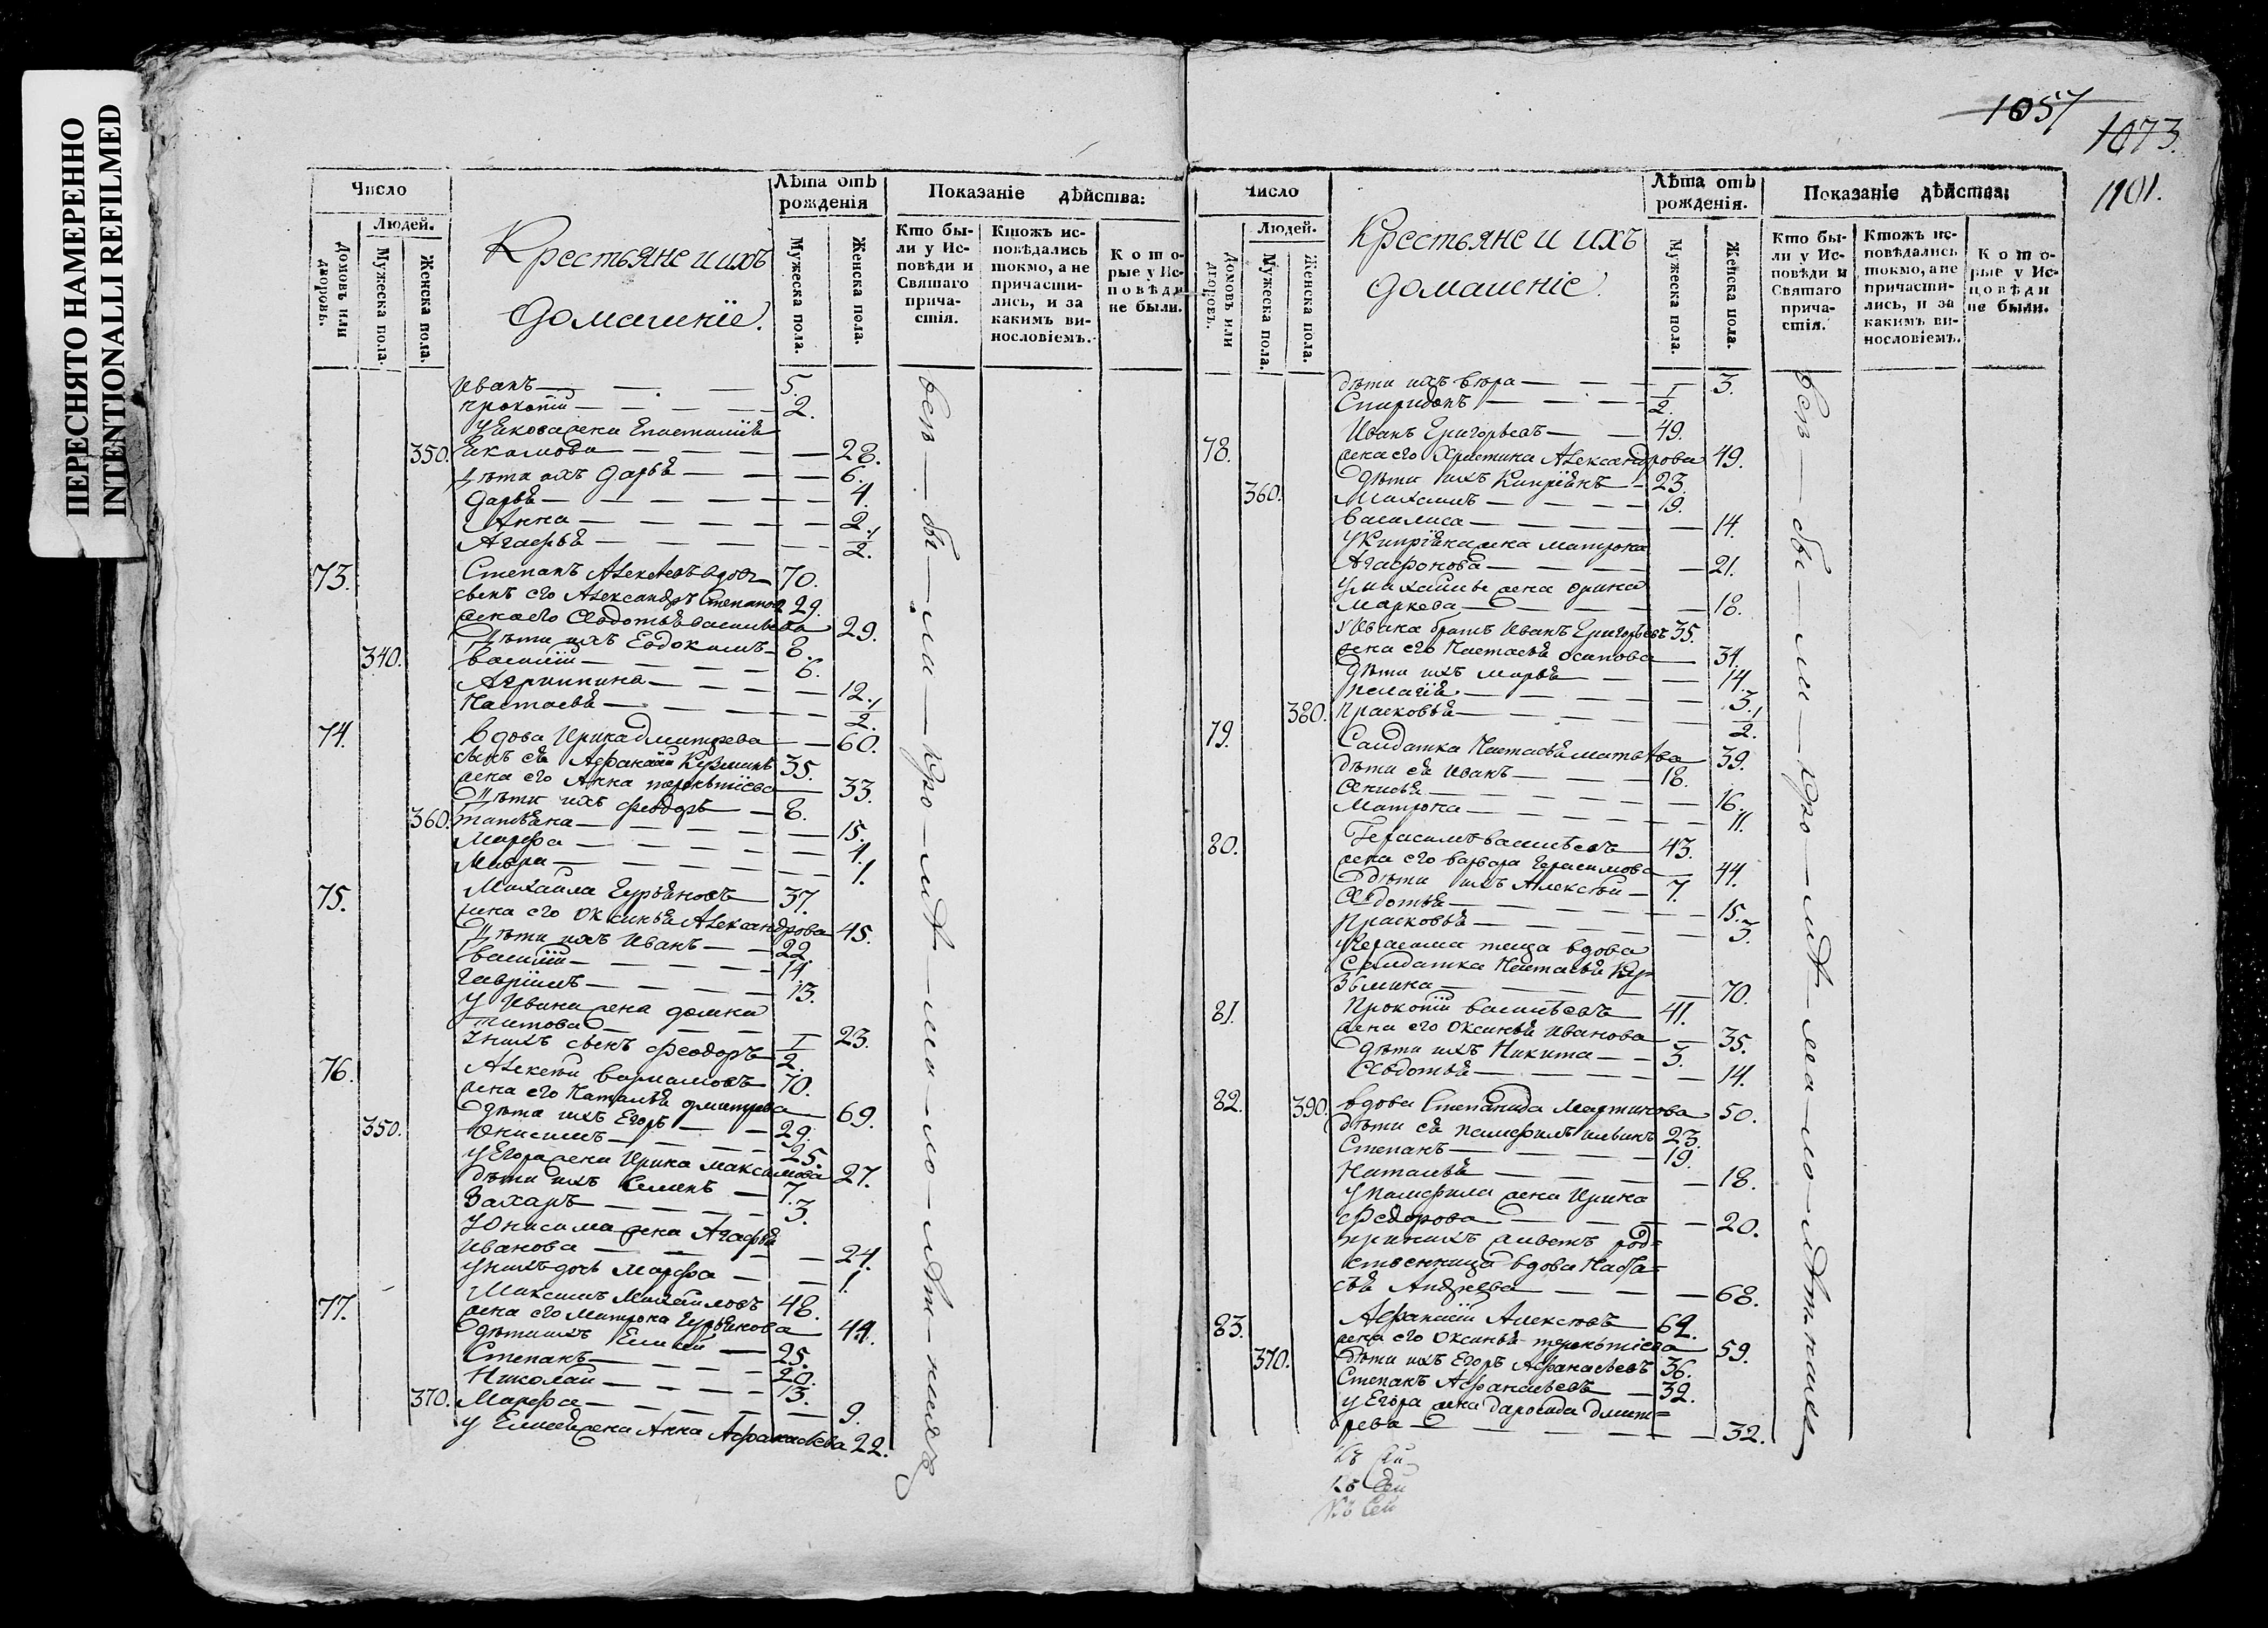 ПЕРЕСНЯТО НАМЕРЕННО
INTENTIONALLI REFILMED
1057
1073.
1101.
Число
Людей.
Домовъ или дворовъ.
Мужеска пола.
Женска пола.
Крестьяне и ихъ
домашніе.
Лѣта отъ рожденія
Мужеска пола.
Женска пола.
Показаніе дѣйства:
Кто были у Исповѣди и Святаго причастія.
Ктожъ исповѣдались токмо, а не причастились, и за какимъ винословіемъ.
Которые у Исповѣди не были.
Иванъ 5.
Прокопій 2.
У Якова жена
350. 28.
Дѣти ихъ Дарья 6.
Дарья 4.
Анна 2.
Агафья 1/2.
73. Степанъ Алексѣевъ вдовъ 70.
сынъ его Александръ Степановъ 29.
жена его Ѳедотья Васильева 29.
Дѣти ихъ Евдокимъ 8.
340. Василій 6.
Агриппина 12.
Настасья 1/2.
74. Вдова Ирина Дмитрева 60.
сынъ ея Афанасій Кузминъ 35.
жена его Анна Терентіева 33.
Дѣти ихъ Феодоръ 8.
360. Татьяна 15.
Марфа 4.
Мавра 1.
75. Михайла Гурьяновъ 37.
жена его Оксинья Александрова 45.
Дѣти ихъ Иванъ 22.
Василій 14.
Гаврилъ 13.
У Ивана жена Домна
Титова 23.
У нихъ сынъ Феодоръ 1/2.
76. Алексѣй Варламовъ 70.
жена его Наталья Дмитрева 69.
Дѣти ихъ Егоръ 29.
350. Онисимъ 25.
У Егора жена Ирина Максимова 27.
Дѣти ихъ Семенъ 7.
Захаръ 3.
У Онисима жена Агафья
Иванова 24.
У нихъ дочь Марфа 1.
77. Максимъ Михайловъ 48.
жена его Матрона Гурьянова 44.
Дѣти ихъ Елисей 25.
Степанъ 20.
Николай 13.
370. Марфа 9.
У Елисея жена Анна Афанасьева 22.
Число
Людей.
Домовъ или дворовъ.
Мужеска пола.
Женска пола.
Крестьяне и ихъ
домашніе.
Лѣта отъ рожденія.
Мужеска пола.
Женска пола.
Показаніе дѣйства:
Кто были у Исповѣди и Святаго причастія.
Ктожъ исповѣдались токмо, а не причастились, и за какимъ винословіемъ.
Которые у Исповѣди не были.
Дѣти ихъ 3.
Спиридонъ 1/2.
78. Иванъ Григорьевъ 49.
жена его Христина Александрова 49.
Дѣти ихъ Кипріянъ 23.
360. Михаилъ 19.
Василиса 14.
У Кипріяна жена Матрона
Агафонова 21.
У Михайлы жена Орина
Маркева 18.
У Ивана братъ Иванъ Григорьевъ 35.
жена его Настасья Осипова 34.
Дѣти ихъ Марья 14.
Пелагія 3.
380. Прасковья 1/2.
79. Салдатка Настасья Матвѣева 39.
Дѣти ея Иванъ 18.
Анисья 16.
Матрона 11.
80. Герасимъ Васильевъ 43.
жена его Варвара Герасимова 44.
Дѣти ихъ Алексѣй 7.
Ѳедотья 15.
Прасковья 3.
У Герасима теща вдова
Салдатка Настасья Ку-
зьмина 70.
81. Прокопій Васильевъ 41.
жена его Оксинья Иванова 35.
Дѣти ихъ Никита 3.
Ѳедотья 14.
82. 390. Вдова Степанида Мартинова 50.
Дѣти ея Памфилъ 23.
Степанъ 19.
Наталья 18.
У Памфила жена Ирина
Федорова 20.
При нихъ живетъ род-
ственница вдова Наста-
сья Андреева 68.
83. Афанасій Алексѣевъ 62.
жена его Оксинья Терентіева 59.
370. Дѣти ихъ Егоръ Афанасьевъ 36.
Степанъ Афанасьевъ 32.
У Егора жена Дмит-
рева 32.